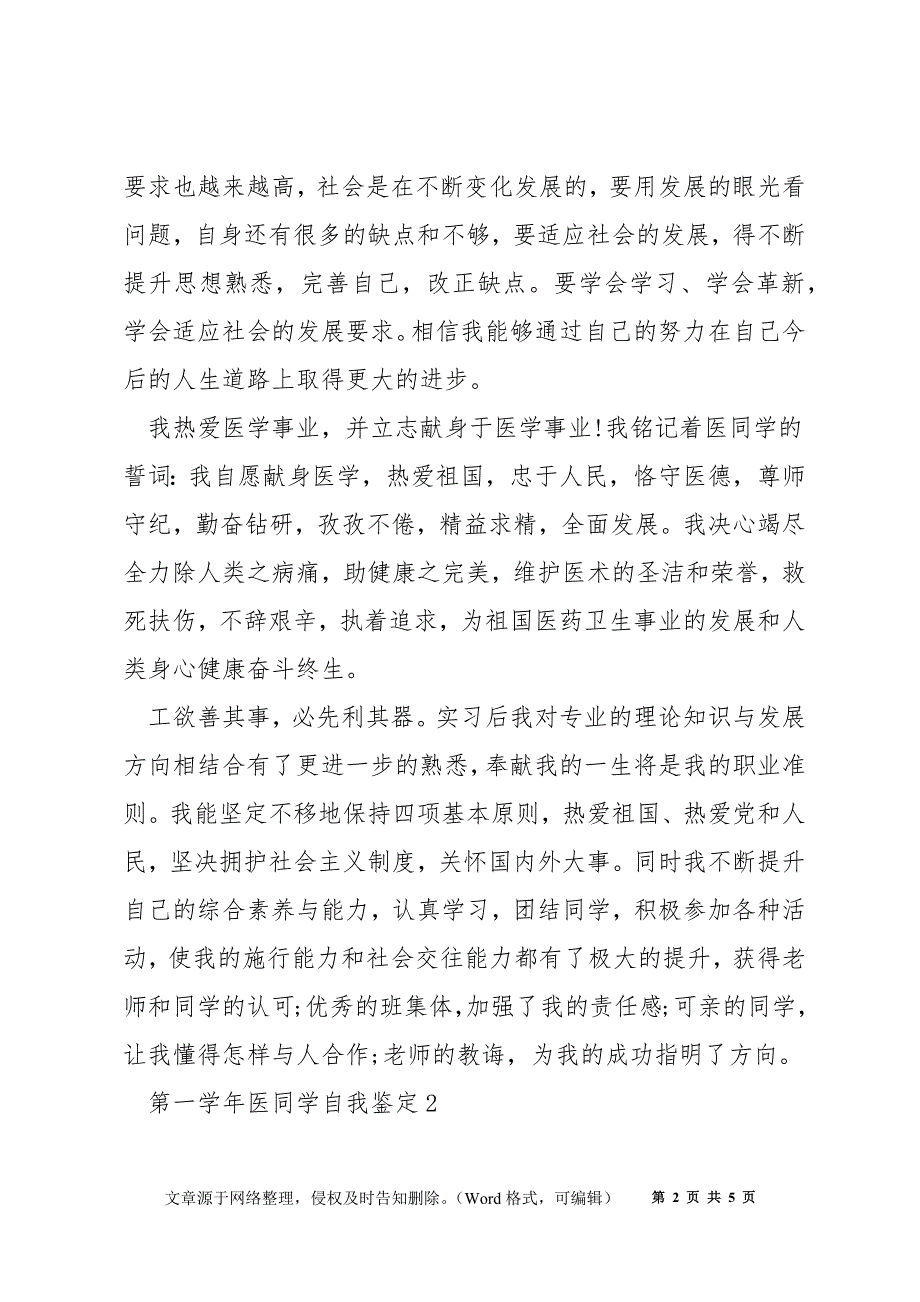 要求也越来越高，社会是在不断变化发展的，要用发展的眼光看
问题，自身还有很多的缺点和不够，要适应社会的发展，得不断
提升思想熟悉，完善自己，改正缺点。要学会学习、学会革新，
学会适应社会的发展要求。相信我能够通过自己的努力在自己今
后的人生道路上取得更大的进步。
我热爱医学事业，并立志献身于医学事业!我铭记着医同学的
誓词：我自愿献身医学，热爱祖国，忠于人民，恪守医德，尊师
守纪，勤奋钻研，孜孜不倦，精益求精，全面发展。我决心竭尽
全力除人类之病痛，助健康之完美，维护医术的圣洁和荣誉，救
死扶伤，不辞艰辛，执着追求，为祖国医药卫生事业的发展和人
类身心健康奋斗终生。
工欲善其事，必先利其器。实习后我对专业的理论知识与发展
方向相结合有了更进一步的熟悉，奉献我的一生将是我的职业准
则。我能坚定不移地保持四项基本原则，热爱祖国、热爱党和人
民，坚决拥护社会主义制度，关怀国内外大事。同时我不断提升
自己的综合素养与能力，认真学习，团结同学，积极参加各种活
动，使我的施行能力和社会交往能力都有了极大的提升，获得老
师和同学的认可;优秀的班集体，加强了我的责任感;可亲的同学，
让我懂得怎样与人合作;老师的教诲，为我的成功指明了方向。
第一学年医同学自我鉴定2
文章源于网络整理，侵权及时告知删除。（Word格式，可编辑） 第 2 页 共 5 页